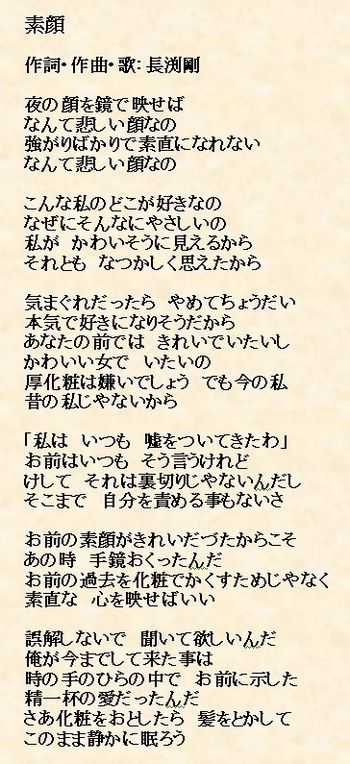 素顔
作詞・作曲・歌：長渕剛
夜の顔を鏡で映せば
なんて悲しい顔なの
強がりばかりで素直になれない
なんて悲しい顔なの
こんな私のどこが好きなの
なぜにそんなにやさしいの
私が　かわいそうに見えるから
それとも　なつかしく思えたから
気まぐれだったら　やめてちょうだい
本気で好きになりそうだから
あなたの前では　きれいでいたいし
かわいい女で　いたいの
厚化粧は嫌いでしょう　でも今の私
昔の私じゃないから
「私は　いつも　嘘をついてきたわ」
お前はいつも　そう言うけれど
けして　それは裏切りじゃないんだし
そこまで　自分を責める事もないさ
お前の素顔がきれいだづたからこそ
あの時　手鏡おくったんだ
お前の過去を化粧でかくすためじゃなく
素直な　心を映せばいい
誤解しないで　聞いて欲しいんだ
俺が今までして来た事は
時の手のひらの中で　お前に示した
精一杯の愛だったんだ
さあ化粧をおとしたら　髪をとかして
このまま静かに眠ろう